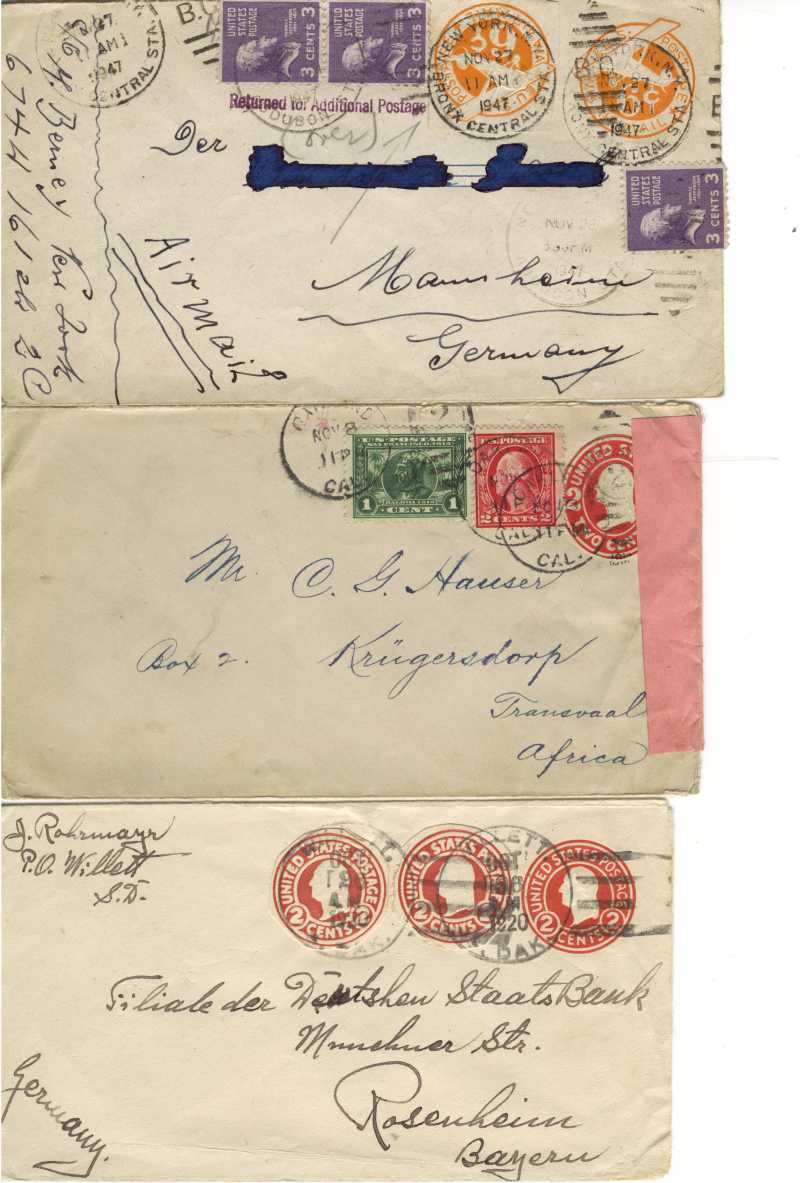 1947
CENTRAL STA.
UNITED STATES POSTAGE
3 CENTS 3
UNITED STATES POSTAGE
3 CENTS 3
NEW YORK, N.Y.
NOV 27
11 AM
1947
BRONX CENTRAL STA.
27
AM
1947
CENTRAL STA.
Returned for Additional Postage
(over)
Der
UNITED STATES POSTAGE
3 CENTS 3
NOV 28
1947
Airmail
Mannheim
Germany
6744 161
NOV 8
CAL.
U.S. POSTAGE
SAN FRANCISCO, 1915
1 CENT 1
U.S. POSTAGE
2 CENTS 2
UNITED STATES
TWO CENTS
CAL.
Mr. C. G. Hauser
Box 2. Krügersdorp
Transvaal
Africa
J. Rohrmayr
P.O. Willett
S.D.
UNITED STATES POSTAGE
2 CENTS 2
UNITED STATES POSTAGE
2 CENTS
WILLETT
OCT
1920
S. DAK.
UNITED STATES POSTAGE
2 CENTS 2
Filiale der Deutshen StaatsBank
Munchner Str.
Rosenheim
Bayern
Germany.